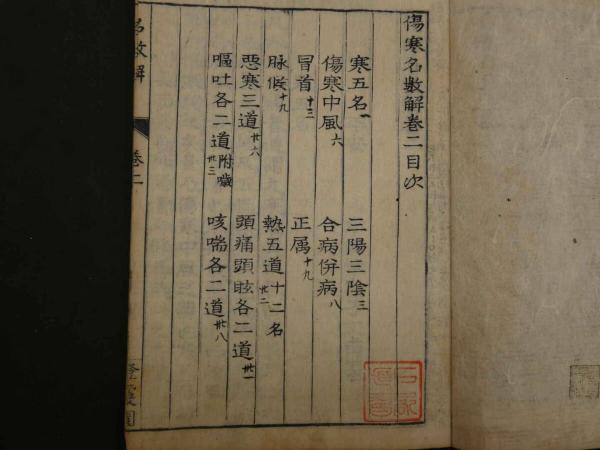 傷寒名數解卷二目次
寒五名一 三陽三陰三
傷寒中風六 合病併病八
冒首十三 正属十九
脉候十九 熱五道十二名廿二
惡寒三道廿六 頭痛頭眩各二道卅一
嘔吐各二道附噦卅三 咳喘各二道卅八
名數解 卷二